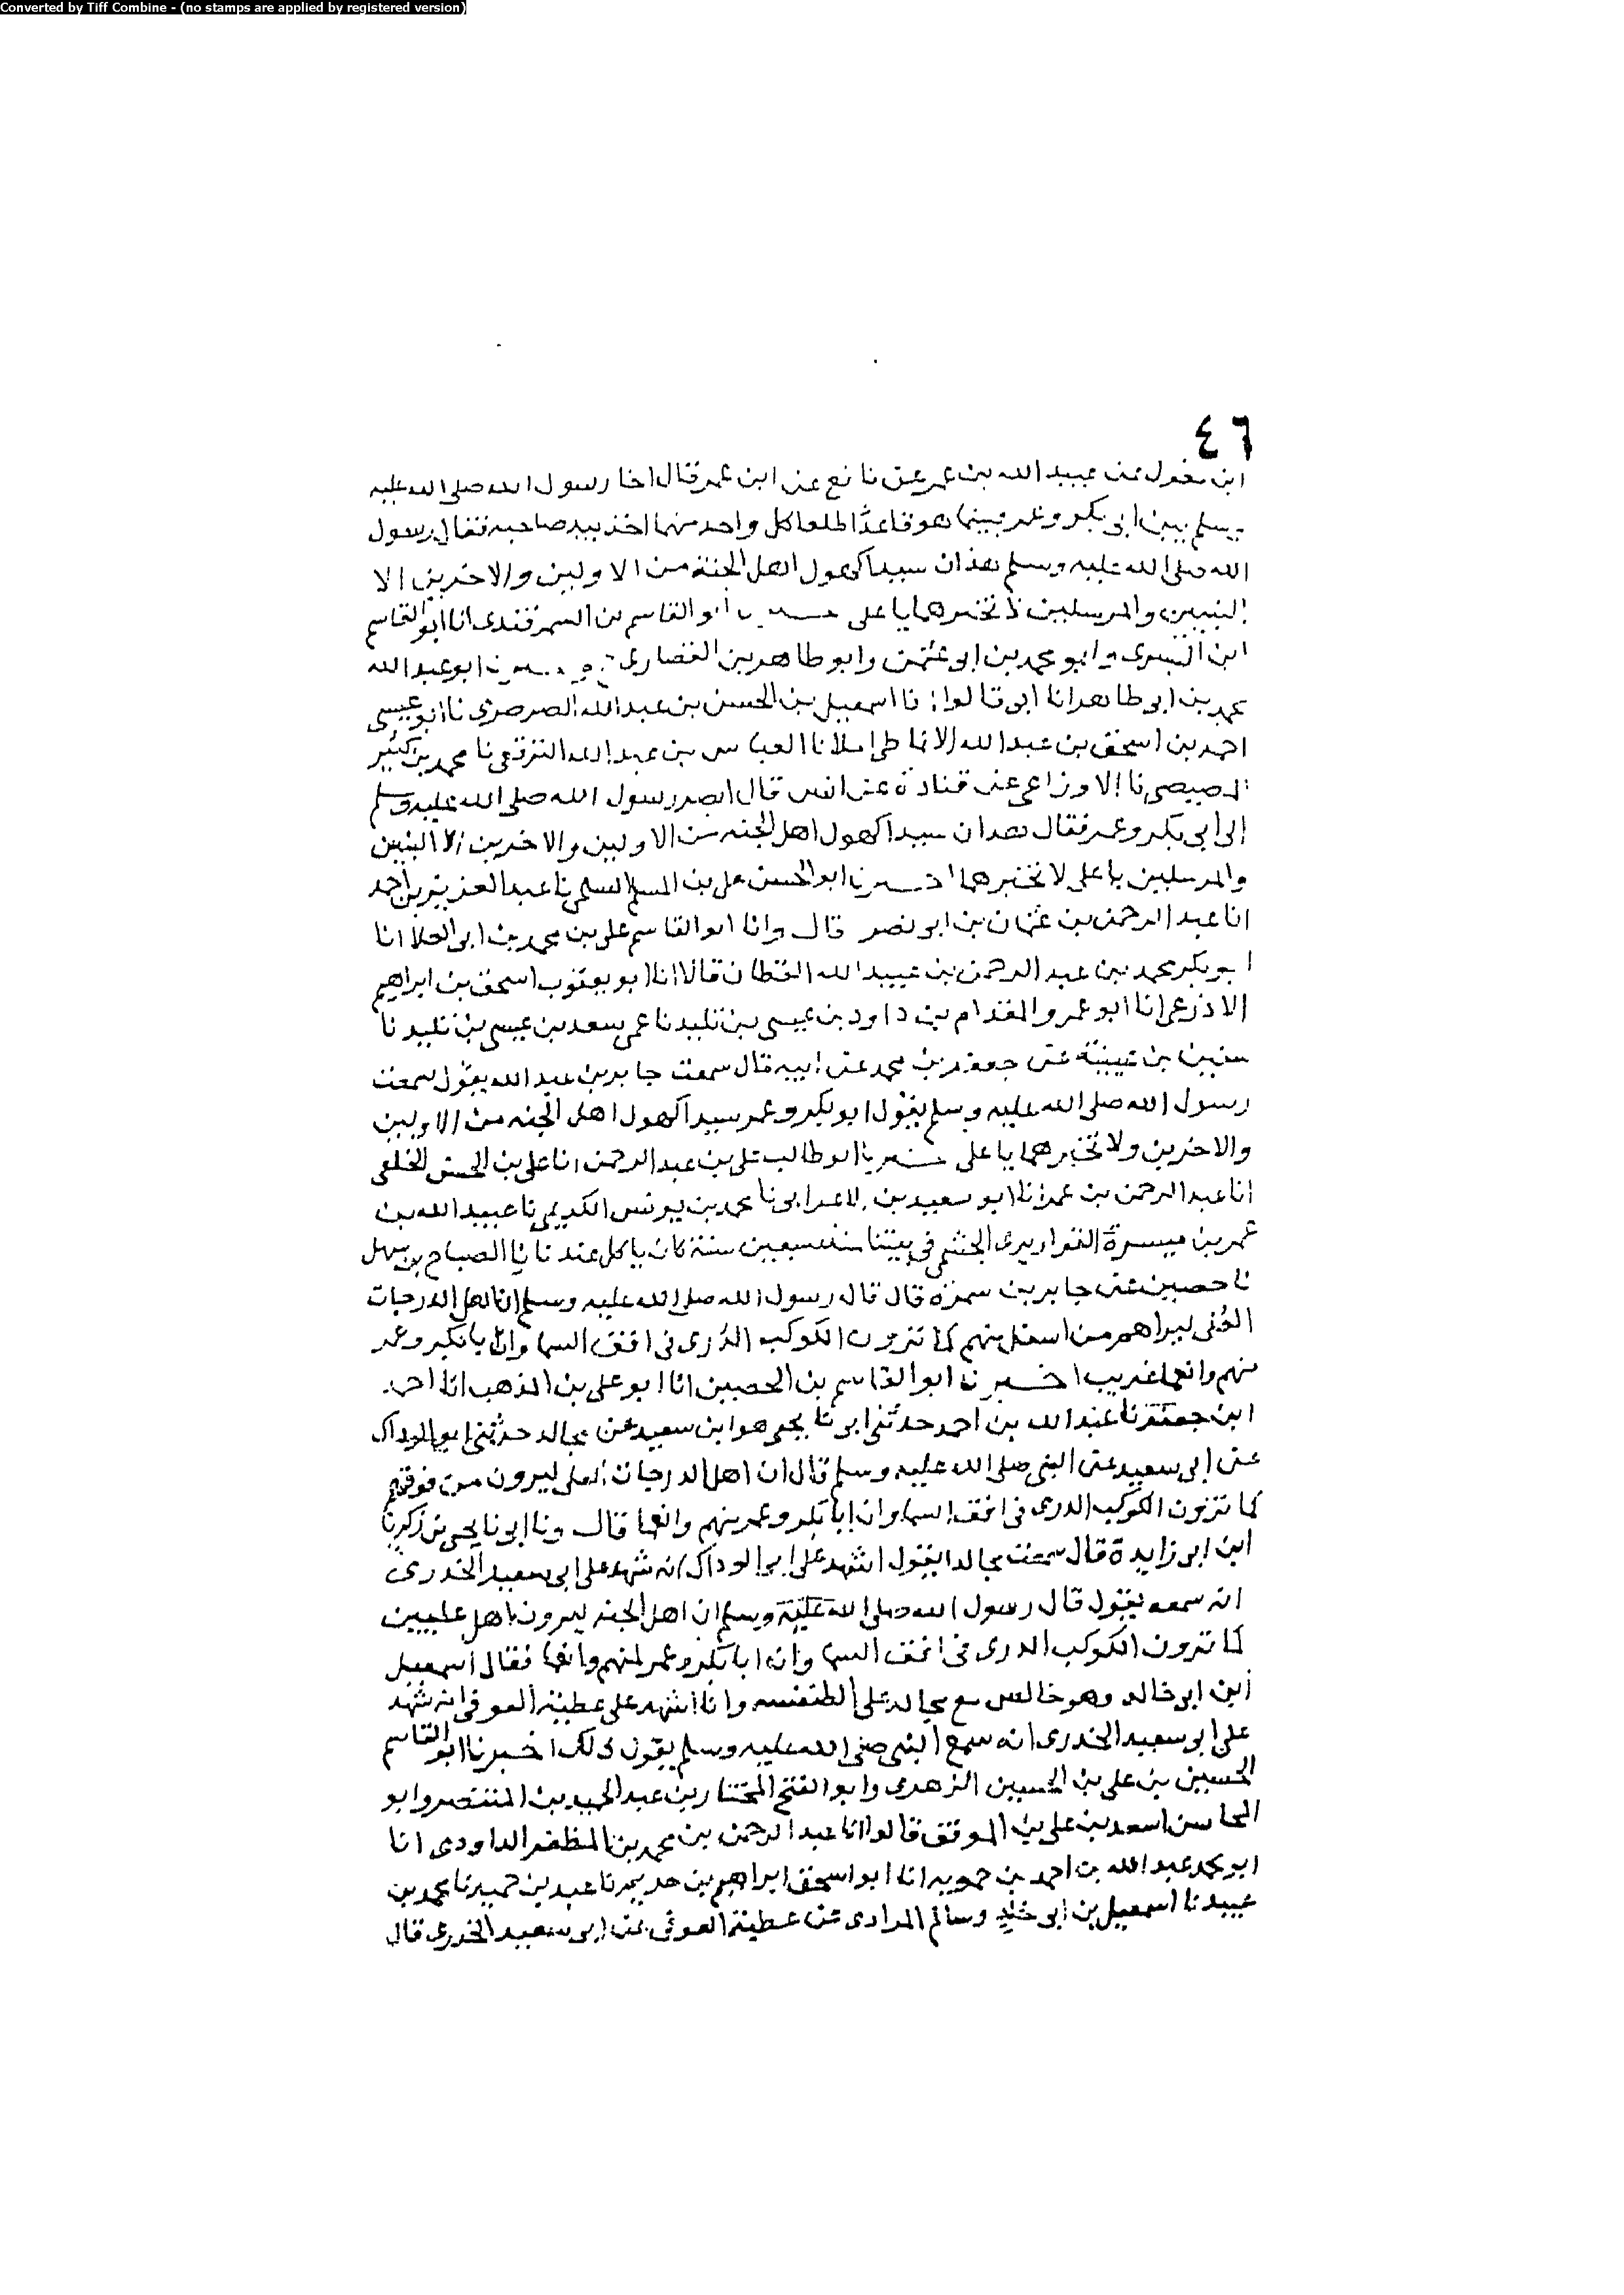 Converted by Tiff Combine - (no stamps are applied by registered version)
٤٦
ابن مغول عن عبيد الله بن عمر عن نافع عن ابن عمر قال اخا رسول الله صلى الله عليه
وسلم بين ابى بكر وعمر فبينما هو قاعد اطلعا كل واحد منهما اخذ بيد صاحبه فقال رسول
الله صلى الله عليه وسلم هذان سيدا كهول اهل الجنة من الاولين والاخرين الا
النبيين والمرسلين لا تخبرهما يا على ابو القاسم بن السمرقندى انا ابو القاسم
ابن البسرى وابو محمد بن ابى عثمن وابو طاهر بن القصارى ابو عبد الله
محمد بن ابى طاهر انا ابى قالوا انا اسمعيل بن الحسن بن عبد الله الصرصرى نا ابو عيسى
احمد بن اسحق بن عبد الله الانماطى املا نا العباس بن عبد الله الترقفى نا محمد بن كثير
المصيصى نا الاوزاعى عن قتادة عن انس قال ابصر رسول الله صلى الله عليه وسلم
الى ابى بكر وعمر فقال هذان سيدا كهول اهل الجنه من الاولين والاخرين الا النبيين
والمرسلين يا على لا تخبرهما اخبرنا ابو الحسن على بن المسلم السلمى نا عبد العزيز بن احمد
انا عبد الرحمن بن عثمان بن ابى نصر قال وانا ابو القاسم على بن محمد بن ابى العلا انا
ابو بكر محمد بن عبد الرحمن بن عبيد الله القطان قالا انا ابو يعقوب اسحق بن ابراهيم
الاذرعى انا ابو عمرو المقدام بن داود بن عيسى بن تليد نا عمى سعد بن عيسى بن تليد نا
سفين بن عيينة عن جعفر بن محمد عن ابيه قال سمعت جابر بن عبد الله يقول سمعت
رسول الله صلى الله عليه وسلم يقول ابو بكر وعمر سيدا كهول اهل الجنه من الاولين
والاخرين ولا تخبرهما يا على اخبرنا ابو طالب على بن عبد الرحمن انا على بن الحسن الخلعى
انا عبد الرحمن بن عمر انا ابو سعيد بن الاعرابى نا محمد بن يونس الكديمى نا عبيد الله بن
عمر بن ميسرة القواريرى الجشمى فى بيتنا سبعين سنة كان ياكل عندنا نا الصباح بن سهل
نا حصين عن جابر بن سمرة قال قال رسول الله صلى الله عليه وسلم ان اهل الدرجات
العلى ليراهم من اسفل منهم كما ترون الكوكب الدرى فى افق السما وان ابا بكر وعمر
منهم وانعما غريب اخبرنا ابو القاسم بن الحصين انا ابو على بن المذهب انا احمد
ابن جعفر نا عبد الله بن احمد حدثنى ابى نا يحيى هو ابن سعيد عن مجالد حدثنى ابو الوداك
عن ابى سعيد عن النبى صلى الله عليه وسلم قال ان اهل الدرجات العلى ليرون من فوقهم
كما ترون الكوكب الدرى فى افق السما وان ابا بكر وعمر منهم وانعما قال ونا ابى نا يحيى بن زكريا
ابن ابى زايدة قال سمعت مجالدا يقول اشهد على ابى الوداك انه شهد على ابى سعيد الخدرى
انه سمعه يقول قال رسول الله صلى الله عليه وسلم ان اهل الجنه ليرون اهل عليين
كما ترون الكوكب الدرى فى افق السما وان ابا بكر وعمر لمنهم وانعما فقال اسمعيل
ابن ابى خالد وهو جالس مع مجالد على الطنفسه وانا اشهد على عطية العوفى انه شهد
على ابى سعيد الخدرى انه سمع النبى صلى الله عليه وسلم يقول ذلك اخبرنا ابو القاسم
الحسين بن على بن الحسين الزهرى وابو الفتح المختار بن عبد الحميد بن المنتصر وابو
المحاسن اسعد بن على بن الموفق قالوا انا عبد الرحمن بن محمد بن المظفر الداودى انا
ابو محمد عبد الله بن احمد بن حمويه انا ابو اسحق ابراهيم بن خزيم نا عبد بن حميد نا محمد بن
عبيد نا اسمعيل بن ابى خالد وسالم المرادى عن عطية العوفى عن ابى سعيد الخدرى قال